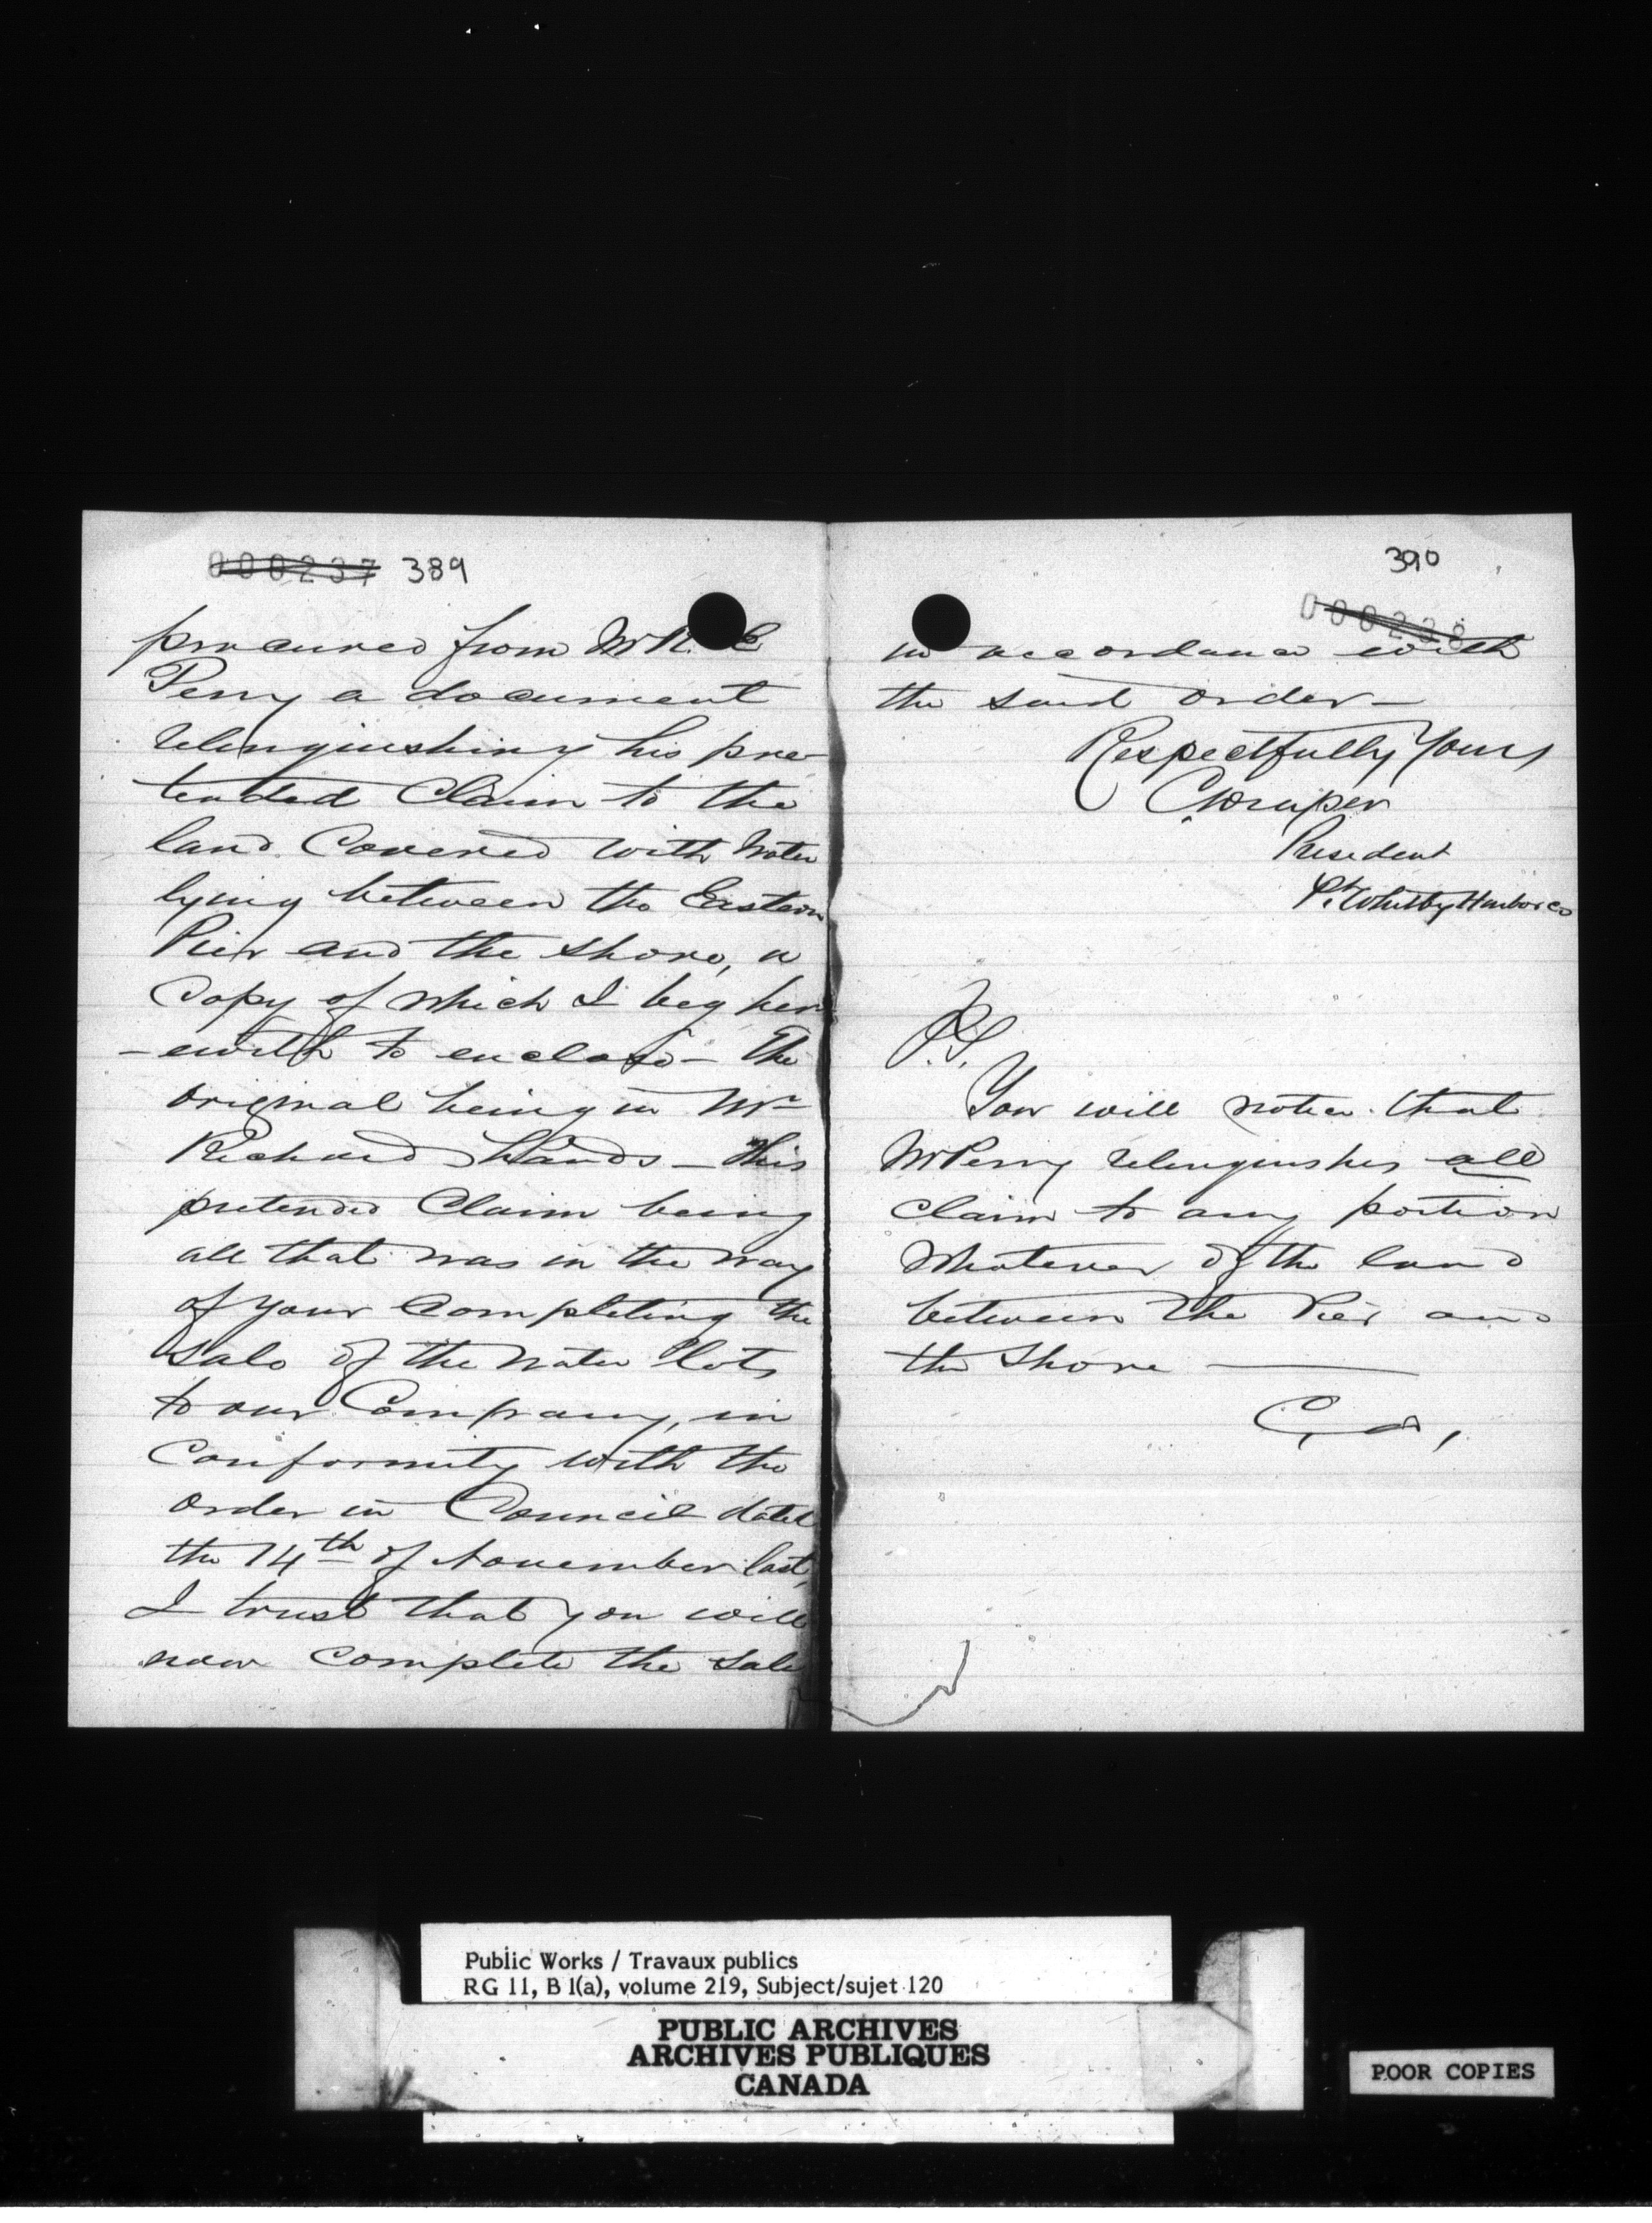 000237 389
procured from Mr R. E
Perry a document
relinquishing his pre-
tended Claim to the
land Covered with Water
lying between the Eastern
Pier and the shore, a
Copy of which I beg her
-ewith to enclose - The
original being in Mr
Richard Hands - This
pretended Claim being
all that was in the way
of your Completing the
Sale of the Water lots
to our Company, in
Conformity with the
order in Council dated
the 14th of November last,
I trust that you will
now complete the Sale
390
000238
in accordance with
the said order -
Respectfully Yours
C Draper
President
Pt. Whitby Harbor Co
P.S.
You will notice that
Mr Perry relinquishes all
Claim to any portion
Whatever of the land
between the Pier and
the Shore
C. D,
Public Works / Travaux publics
RG 11, B 1(a), volume 219, Subject/sujet 120
PUBLIC ARCHIVES
ARCHIVES PUBLIQUES
CANADA
POOR COPIES